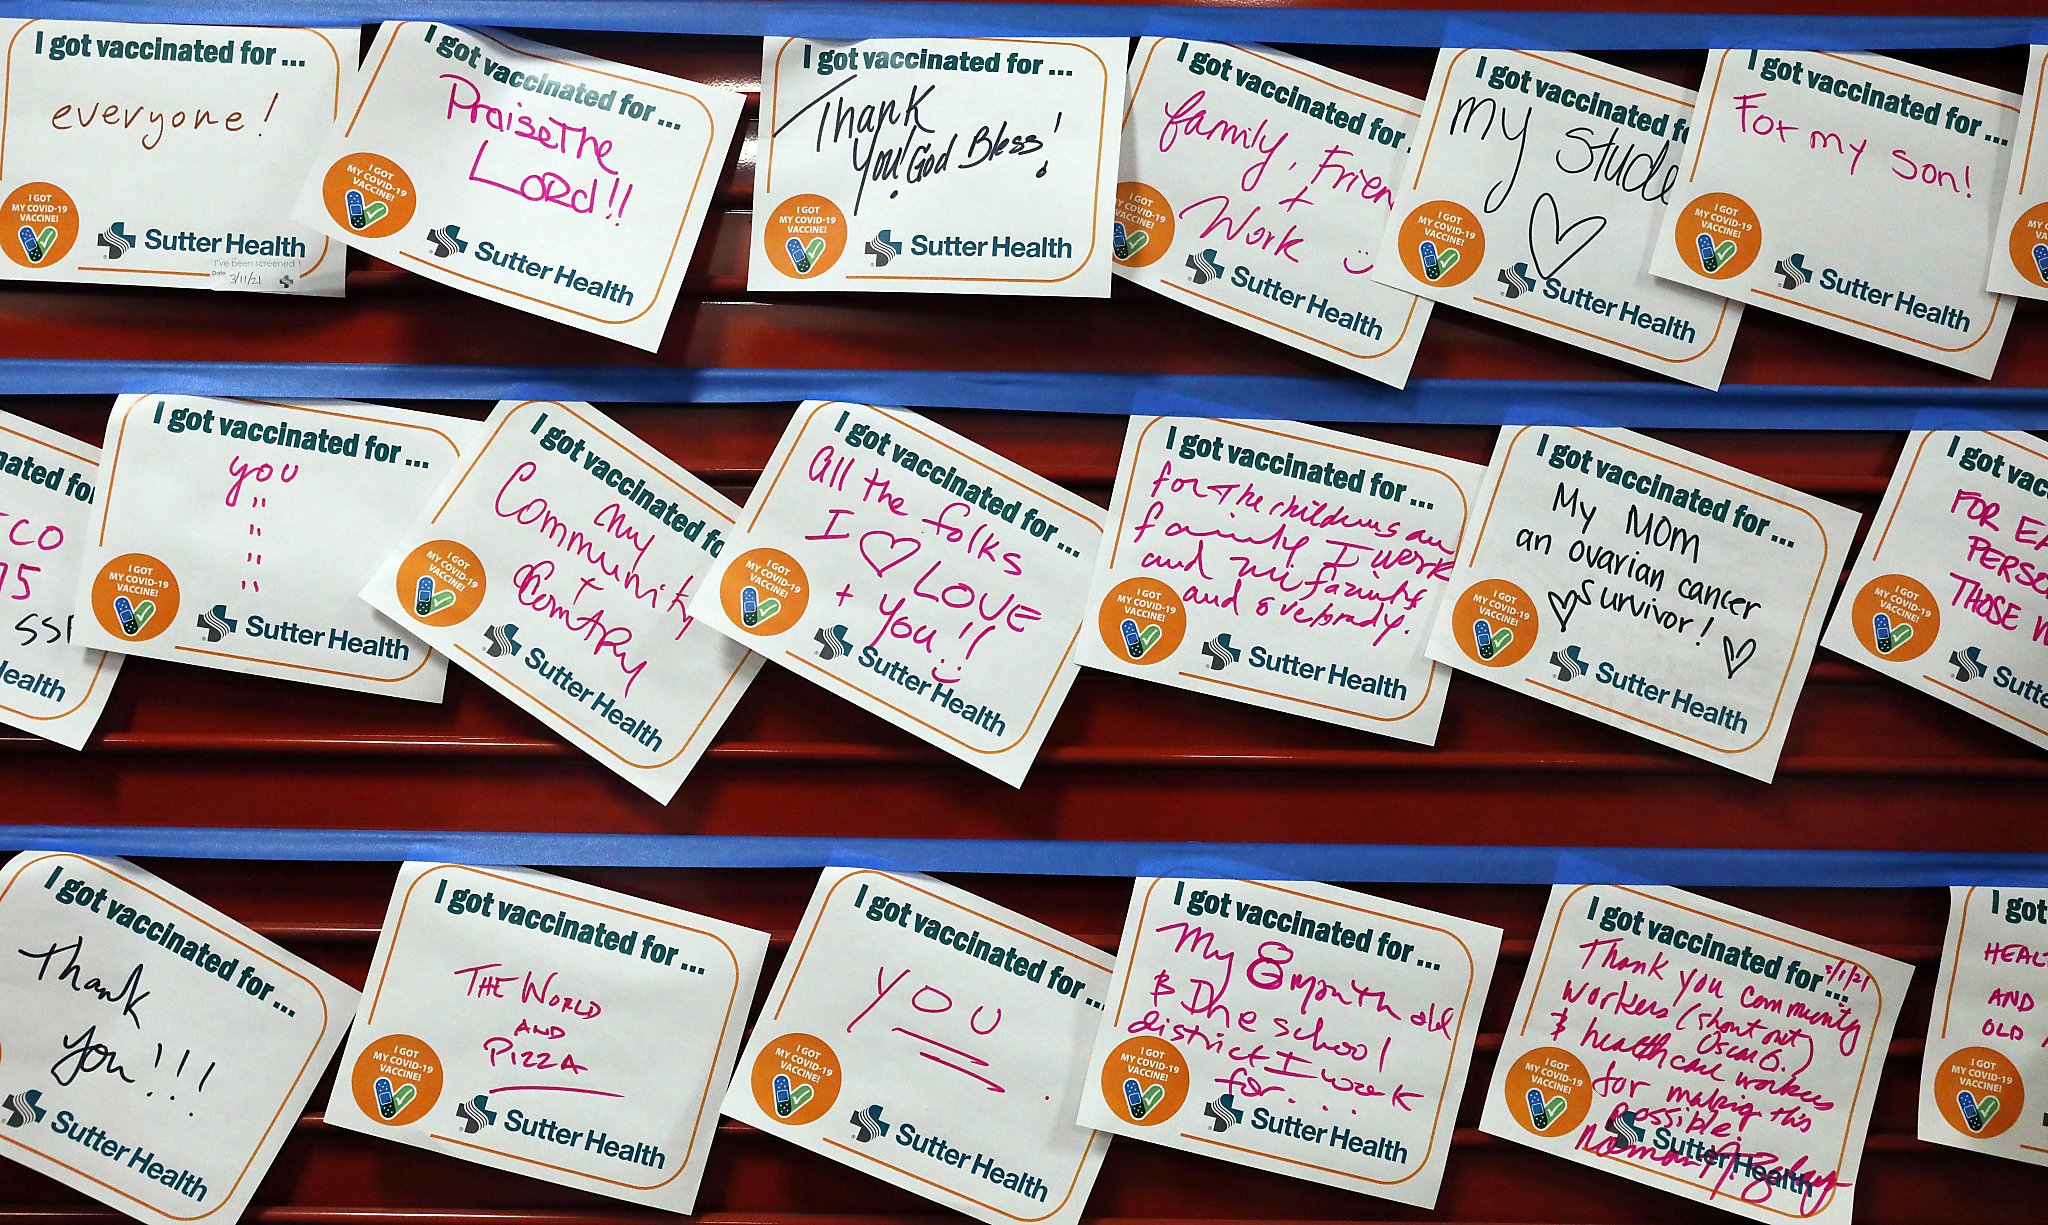 I got vaccinated for ...
everyone!
I GOT
MY COVID-19
VACCINE!
Sutter Health
I've been screened!
Date 3/11/21
I got vaccinated for ...
Praise The
Lord!!
I GOT
MY COVID-19
VACCINE!
Sutter Health
I got vaccinated for ...
Thank
you! God Bless!
I GOT
MY COVID-19
VACCINE!
Sutter Health
I got vaccinated for
family, Frien
+
Work
I GOT
MY COVID-19
VACCINE!
Sutter Health
I got vaccinated fo
my stude
I GOT
MY COVID-19
VACCINE!
Sutter Health
I got vaccinated for ...
For my son!
I GOT
MY COVID-19
VACCINE!
Sutter Health
nated for
CO
75
SSF
Health
I got vaccinated for ...
you
" "
" "
" "
" "
I GOT
MY COVID-19
VACCINE!
Sutter Health
I got vaccinated fo
my
Community
+
Country
I GOT
MY COVID-19
VACCINE!
Sutter Health
I got vaccinated for ...
all the folks
I ♡ LOVE
+ you!!
I GOT
MY COVID-19
VACCINE!
Sutter Health
I got vaccinated for ...
for the children an
family I work
and my family
and everybody.
I GOT
MY COVID-19
VACCINE!
Sutter Health
I got vaccinated for ...
My MOM
an ovarian cancer
survivor!
I GOT
MY COVID-19
VACCINE!
Sutter Health
I got vac
FOR EA
PERSO
THOSE W
I GOT
MY COVID-19
VACCINE!
Sutte
I got vaccinated for ...
Thank
you!!!
Sutter Health
I got vaccinated for ...
THE WORLD
AND
PIZZA
I GOT
MY COVID-19
VACCINE!
Sutter Health
I got vaccinated for ...
you
I GOT
MY COVID-19
VACCINE!
Sutter Health
I got vaccinated for ...
My 8 month old
& The school
district I work
for...
I GOT
MY COVID-19
VACCINE!
Sutter Health
I got vaccinated for ...
3/1/21
Thank you community
workers (shout out
Oscar G.)
& healthcare workers
for making this
possible!
I GOT
MY COVID-19
VACCINE!
Sutter Health
I got
HEAL
AND
OLD
I GOT
MY COVID-19
VACCINE!